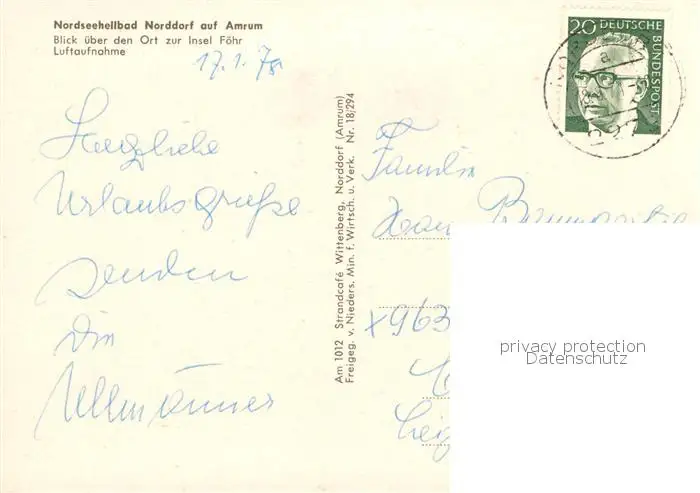 Nordseeheilbad Norddorf auf Amrum
Blick über den Ort zur Insel Föhr
Luftaufnahme
17.1.78
Herzliche
Urlaubsgrüße
senden
die
Ullmänner
Am 1012 Strandcafé Wittenberg, Norddorf (Amrum)
Freigeg. v. Nieders. Min. f. Wirtsch. u. Verk. Nr. 18/294
20 DEUTSCHE
BUNDESPOST
Familie
privacy protection
Datenschutz